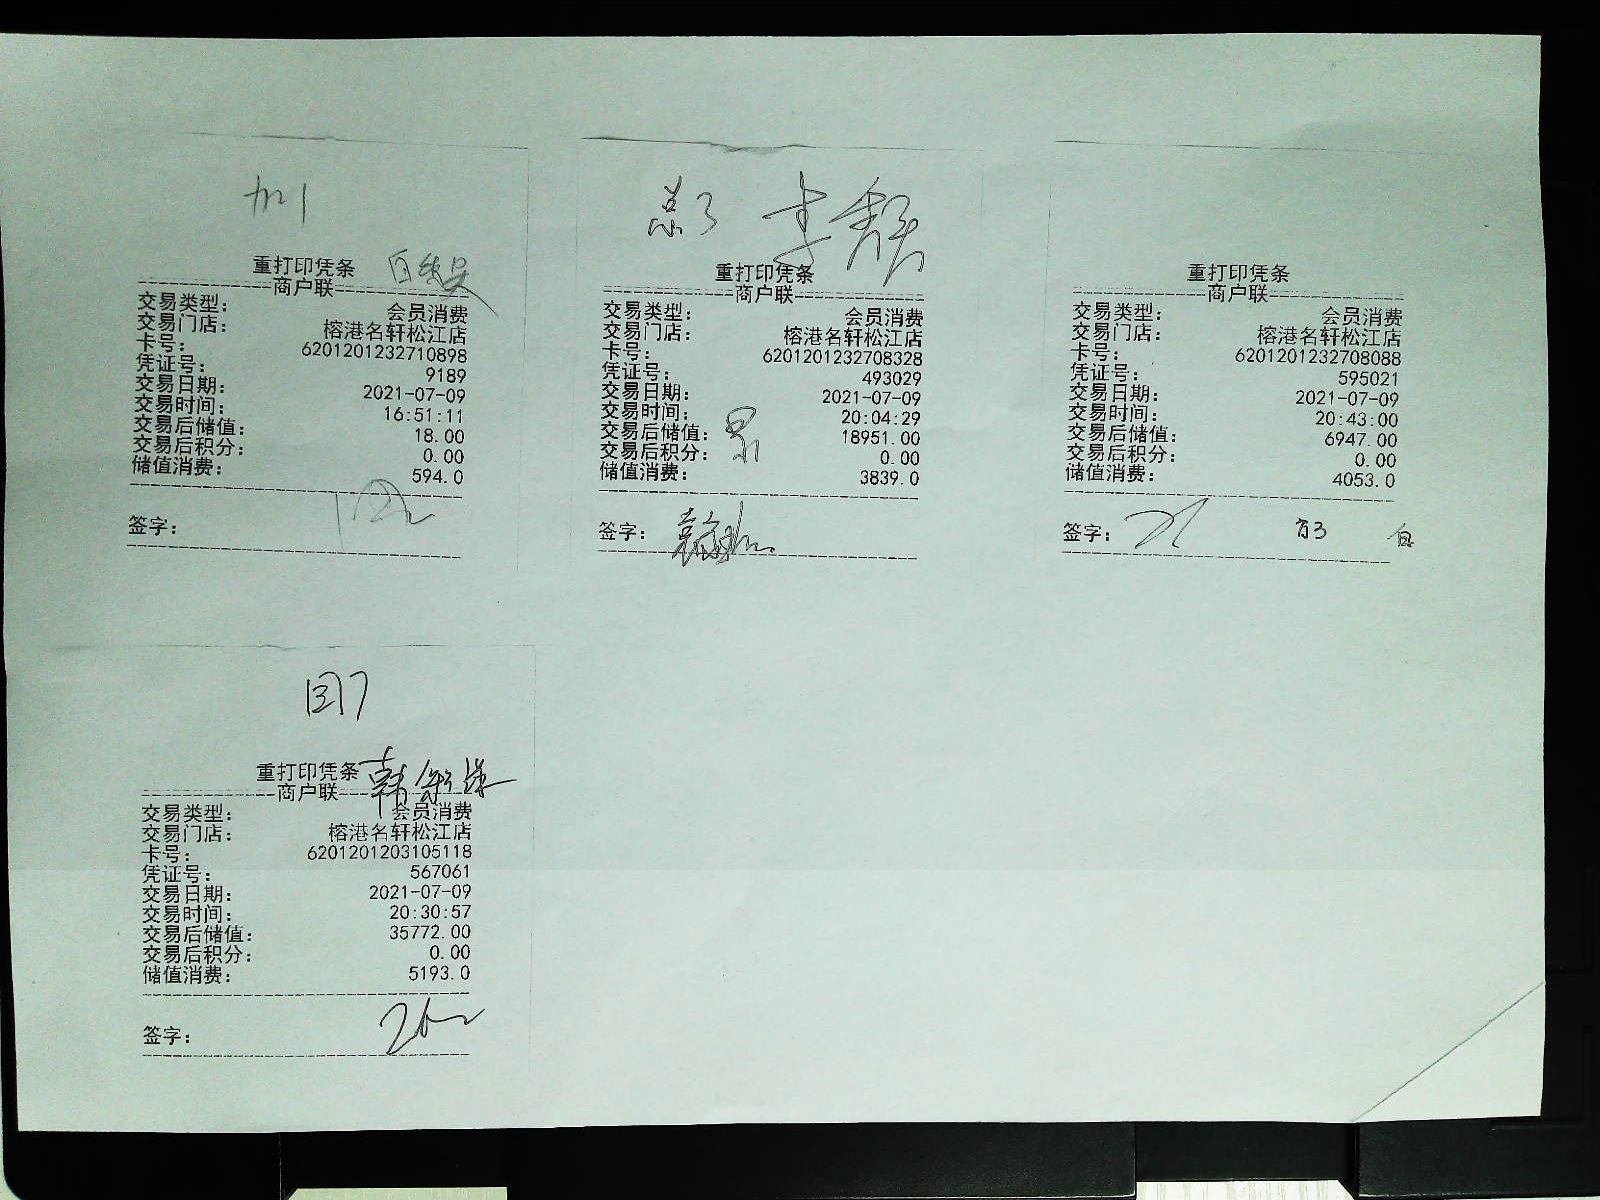 加1
重打印凭条
商户联
交易类型: 会员消费
交易门店: 榕港名轩松江店
卡号: 6201201232710898
凭证号: 9189
交易日期: 2021-07-09
交易时间: 16:51:11
交易后储值: 18.00
交易后积分: 0.00
储值消费: 594.0
签字:
总3
重打印凭条
商户联
交易类型: 会员消费
交易门店: 榕港名轩松江店
卡号: 6201201232708328
凭证号: 493029
交易日期: 2021-07-09
交易时间: 20:04:29
交易后储值: 18951.00
交易后积分: 0.00
储值消费: 3839.0
签字:
重打印凭条
商户联
交易类型: 会员消费
交易门店: 榕港名轩松江店
卡号: 6201201232708088
凭证号: 595021
交易日期: 2021-07-09
交易时间: 20:43:00
交易后储值: 6947.00
交易后积分: 0.00
储值消费: 4053.0
签字:
重打印凭条
商户联
交易类型: 会员消费
交易门店: 榕港名轩松江店
卡号: 6201201203105118
凭证号: 567061
交易日期: 2021-07-09
交易时间: 20:30:57
交易后储值: 35772.00
交易后积分: 0.00
储值消费: 5193.0
签字: